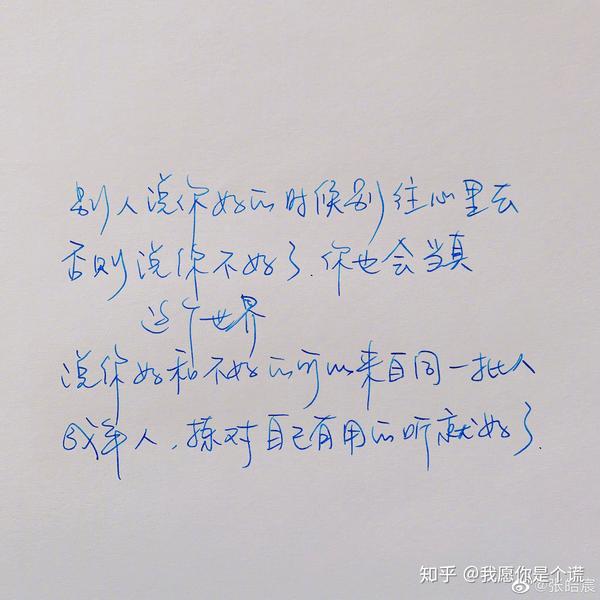 别人说你好的时候别往心里去
否则说你不好了.你也会当真
这个世界
说你好和不好的可以来自同一批人
成年人,拣对自己有用的听就好了.
知乎 @我愿你是个谎
@张皓宸